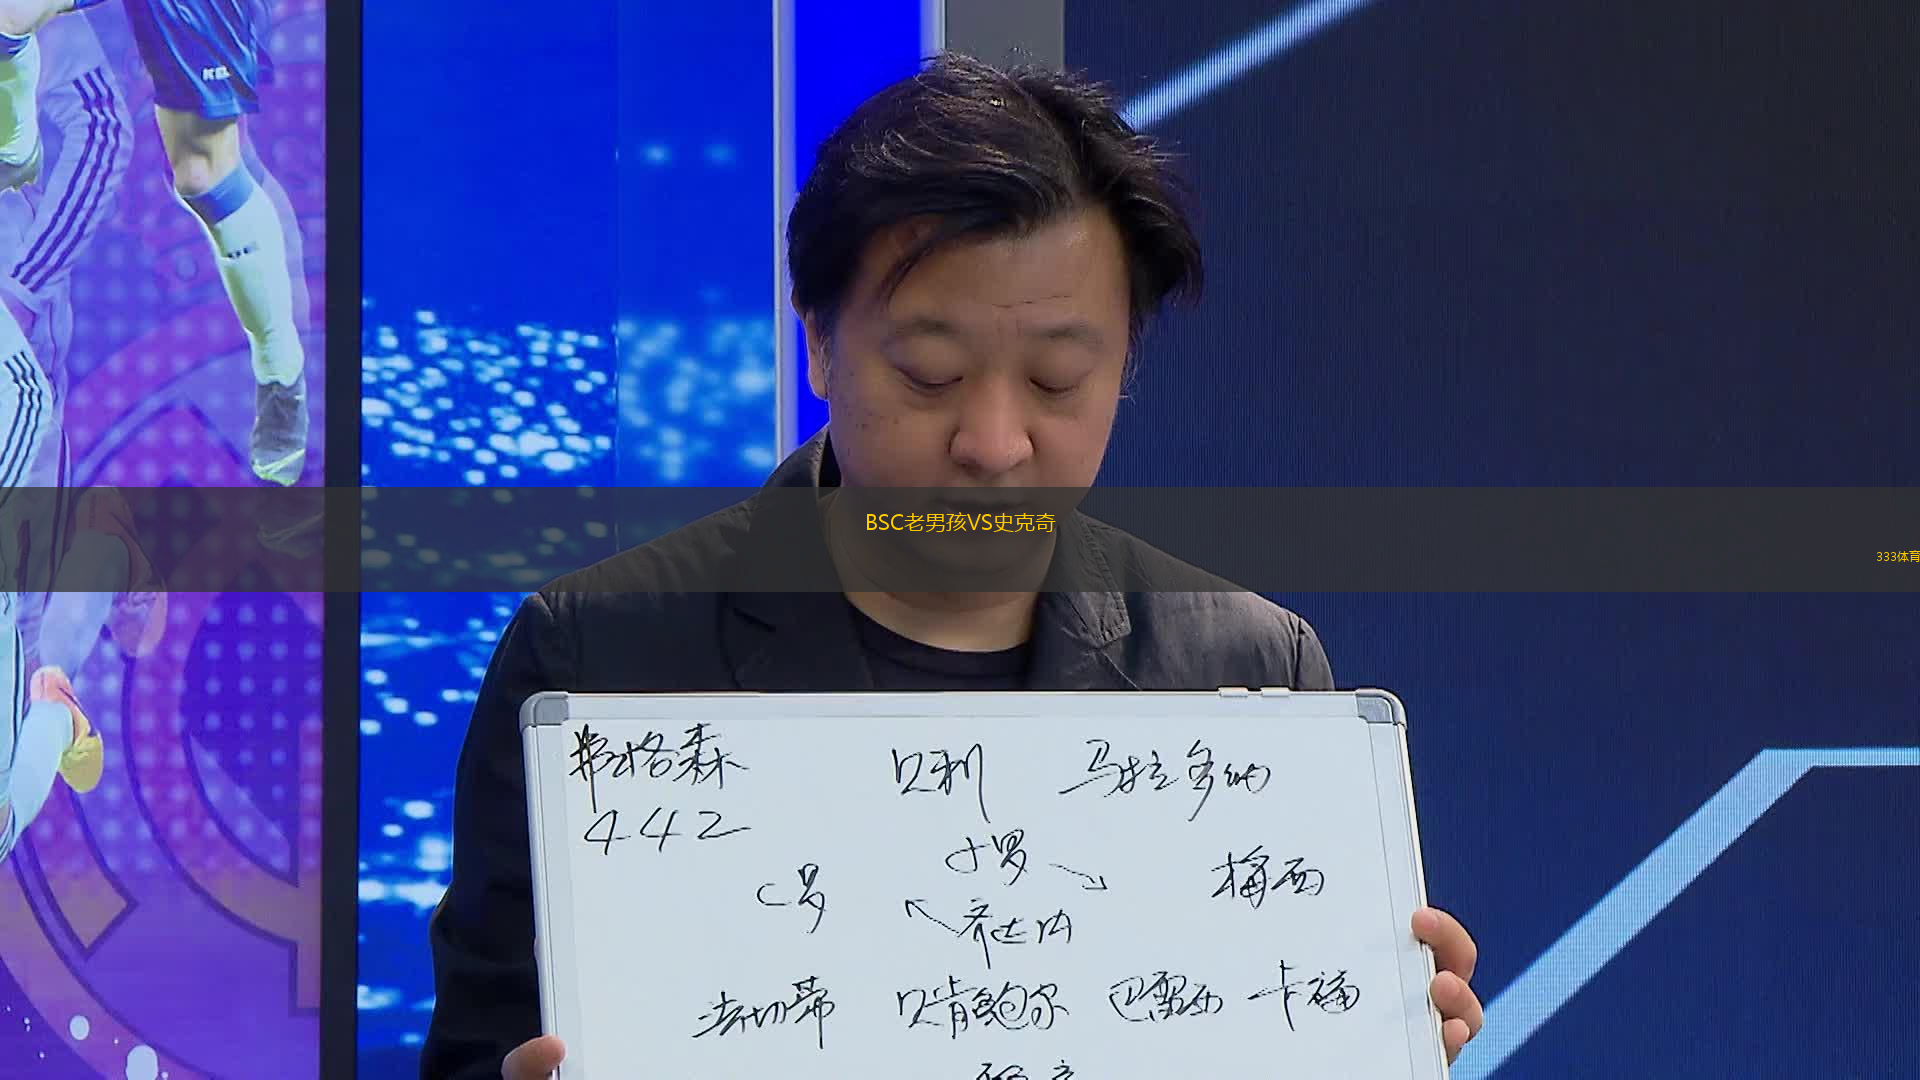 BSC老男孩VS史克奇
333体育
弗格森 贝利 马拉多纳
442
小罗
C罗 梅西
齐达内
法切蒂 贝肯鲍尔 巴雷西 卡福